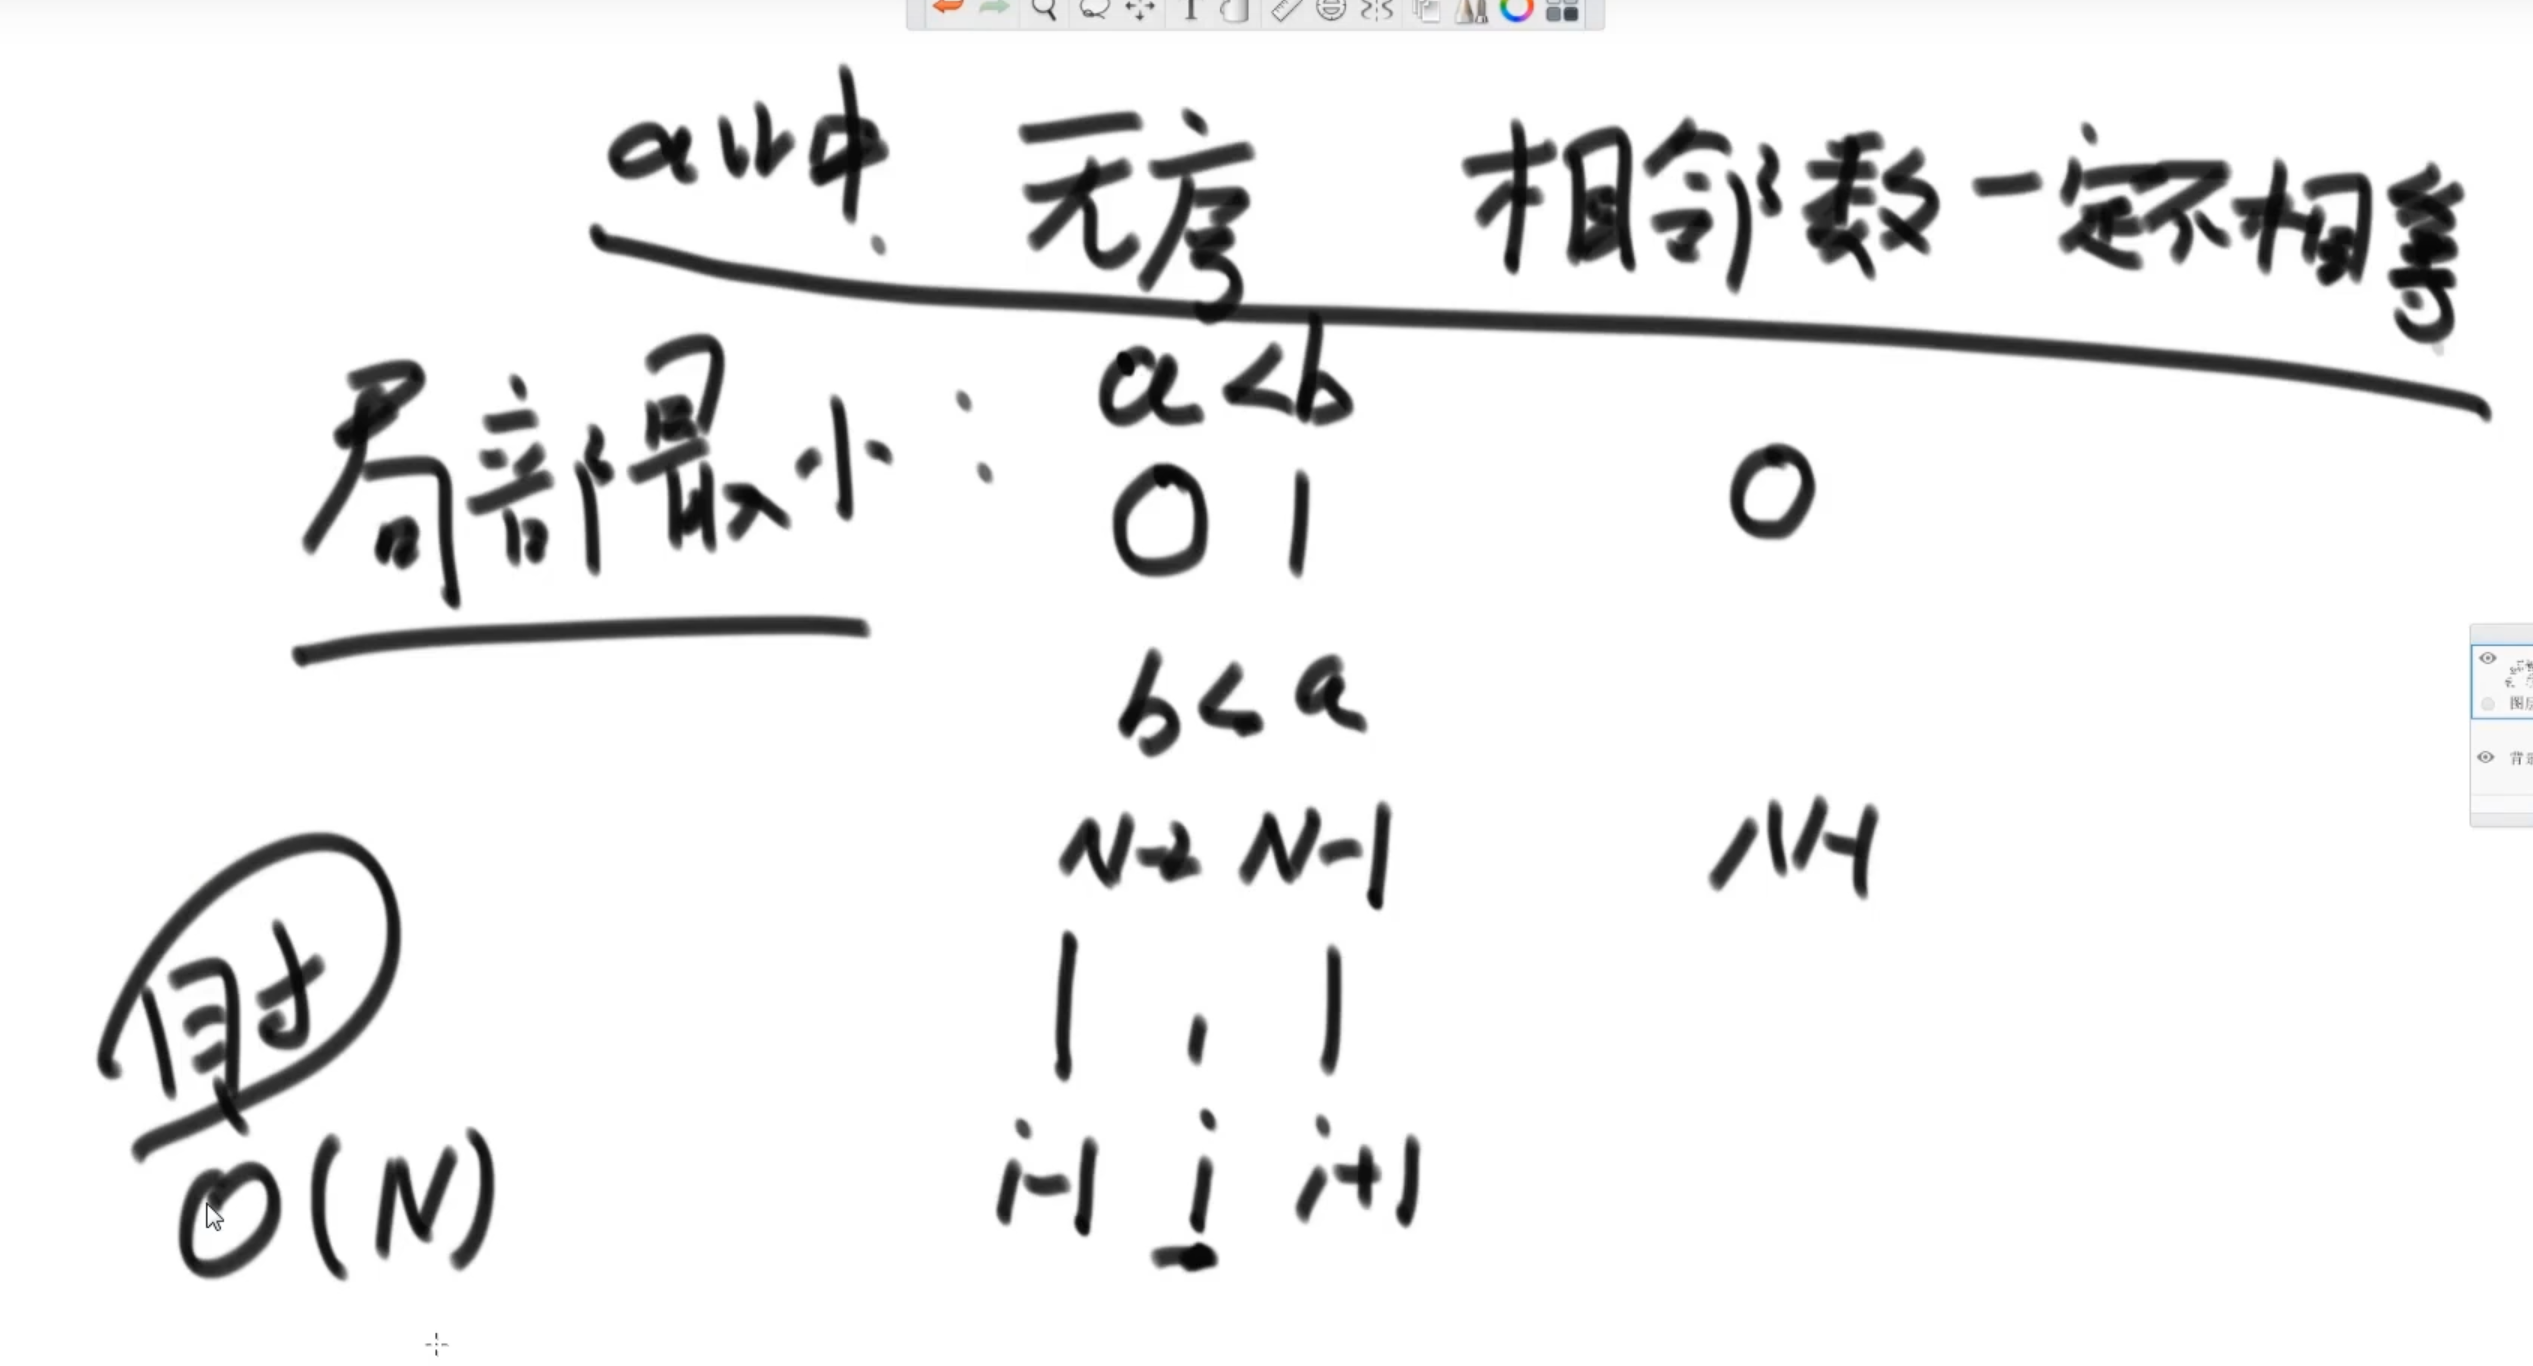 arr中 无序 相邻数一定不相等
局部最小: a<b
0 1 0
b<a
N-2 N-1 N-1
i-1 i i+1
O(N)